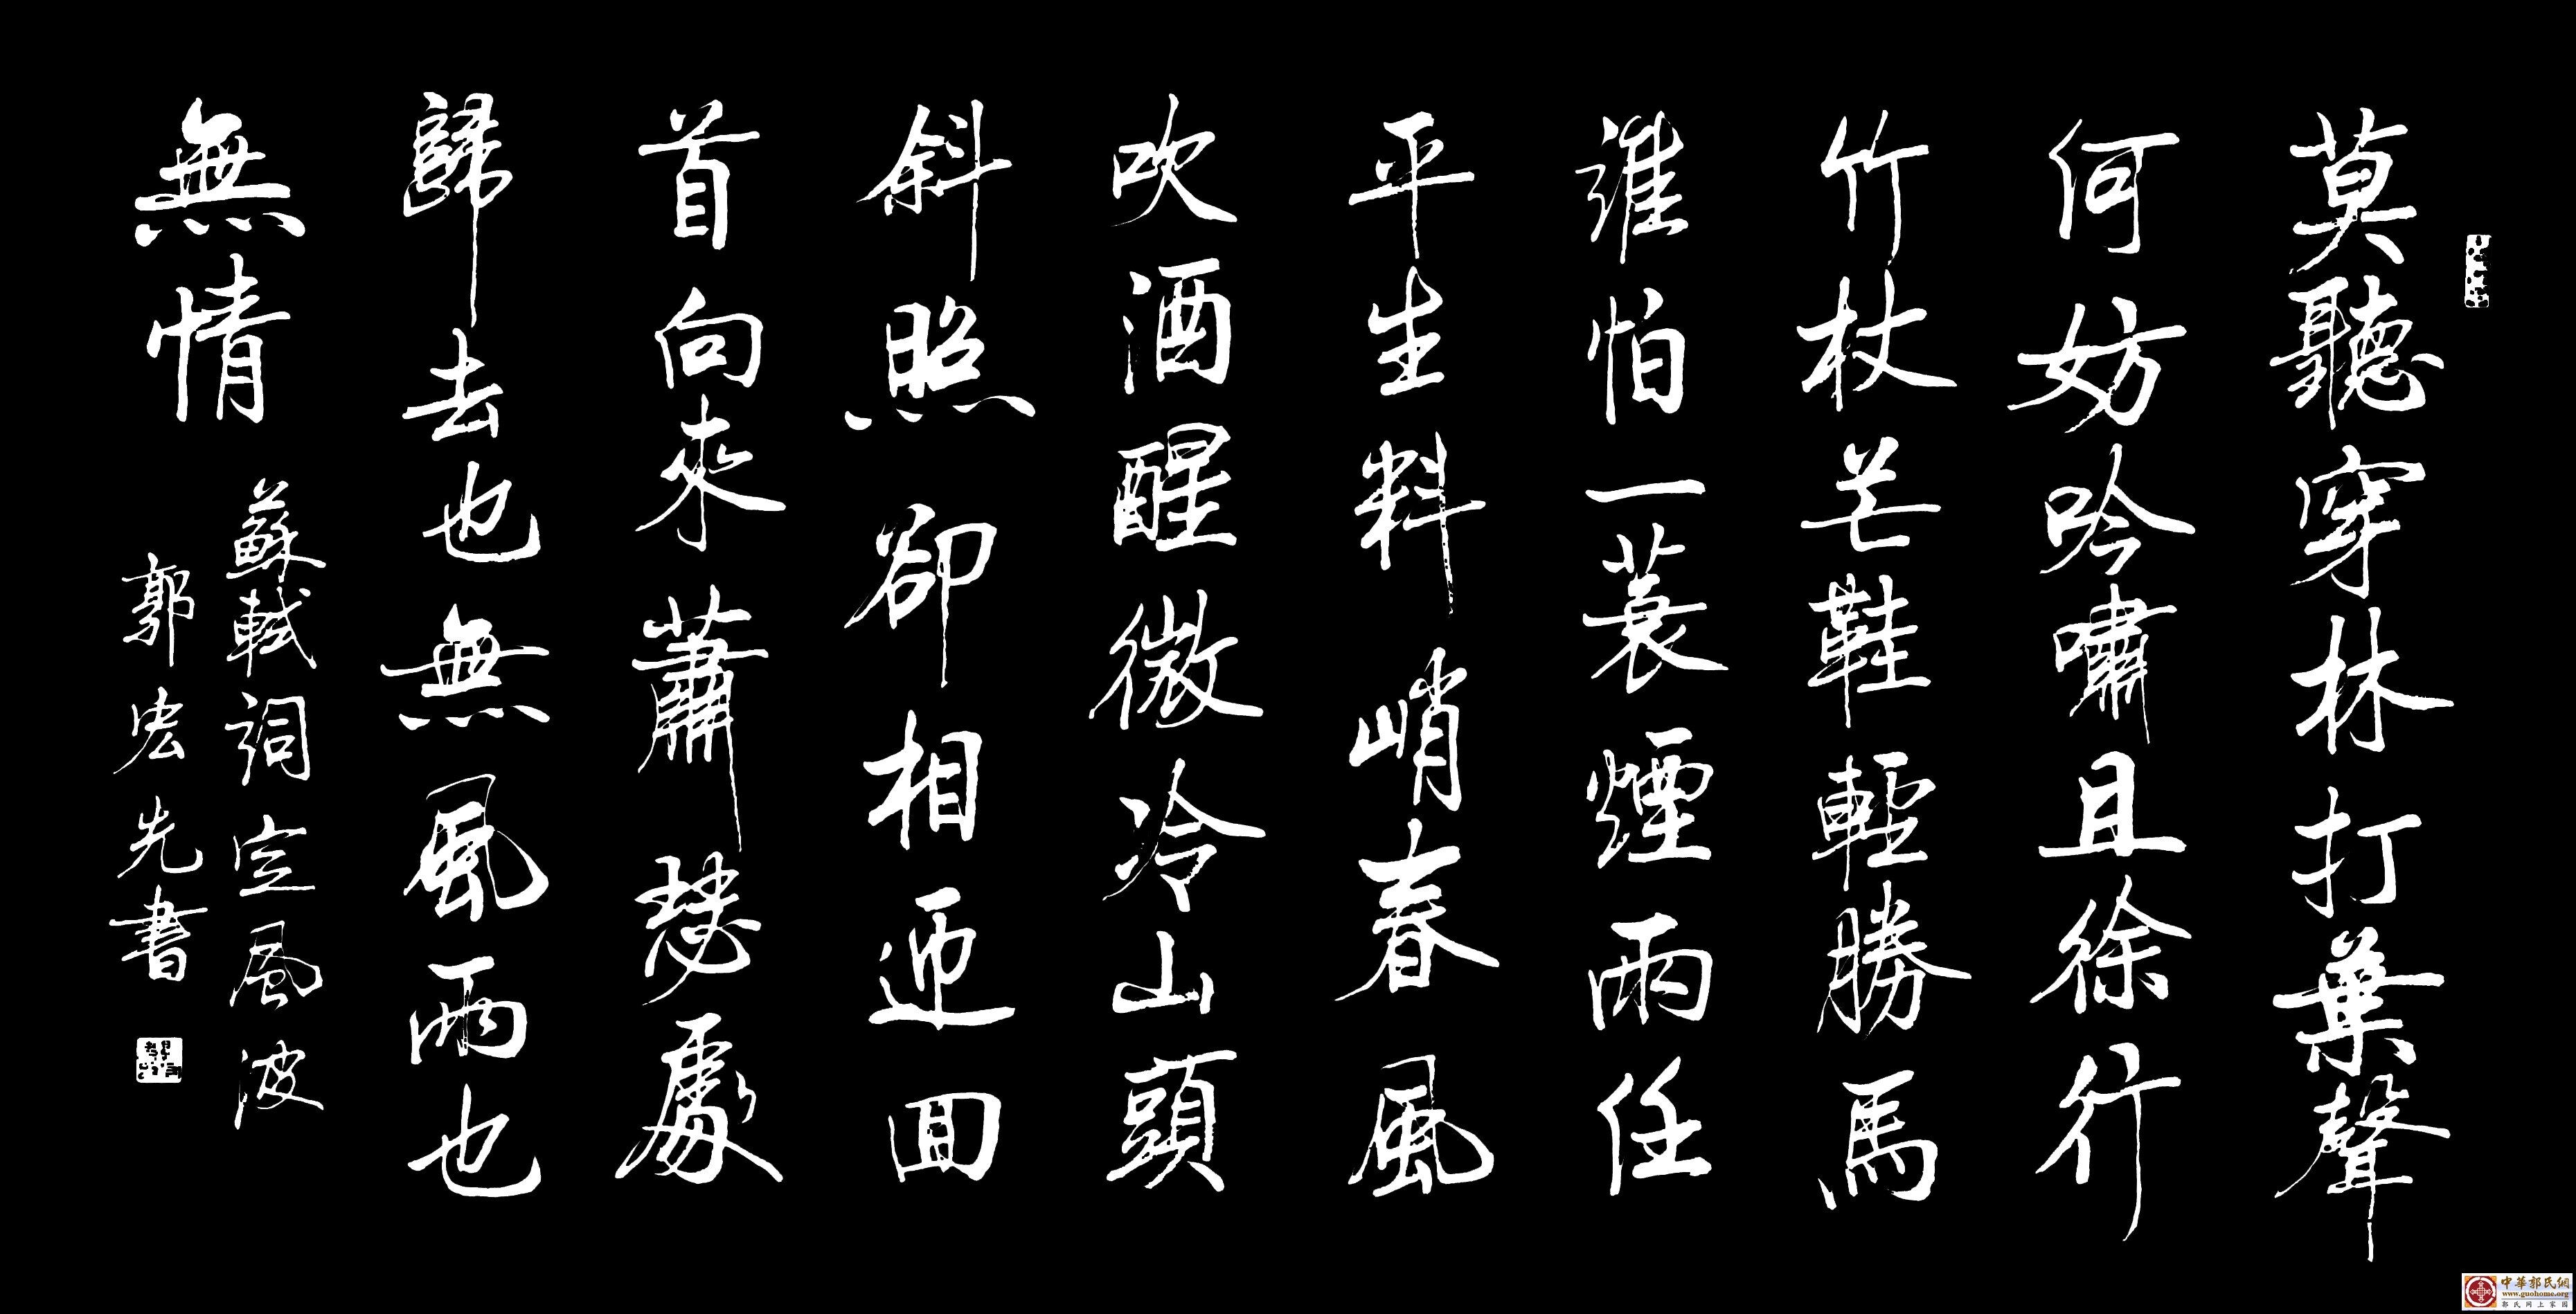 莫聽穿林打葉聲
何妨吟嘯且徐行
竹杖芒鞋輕勝馬
誰怕一蓑煙雨任
平生料峭春風
吹酒醒微冷山頭
斜照卻相迎回
首向來蕭瑟處
歸去也無風雨也
無情
蘇軾詞定風波
郭宏先書
中華郭氏網
www.guohome.org
郭氏网上家园